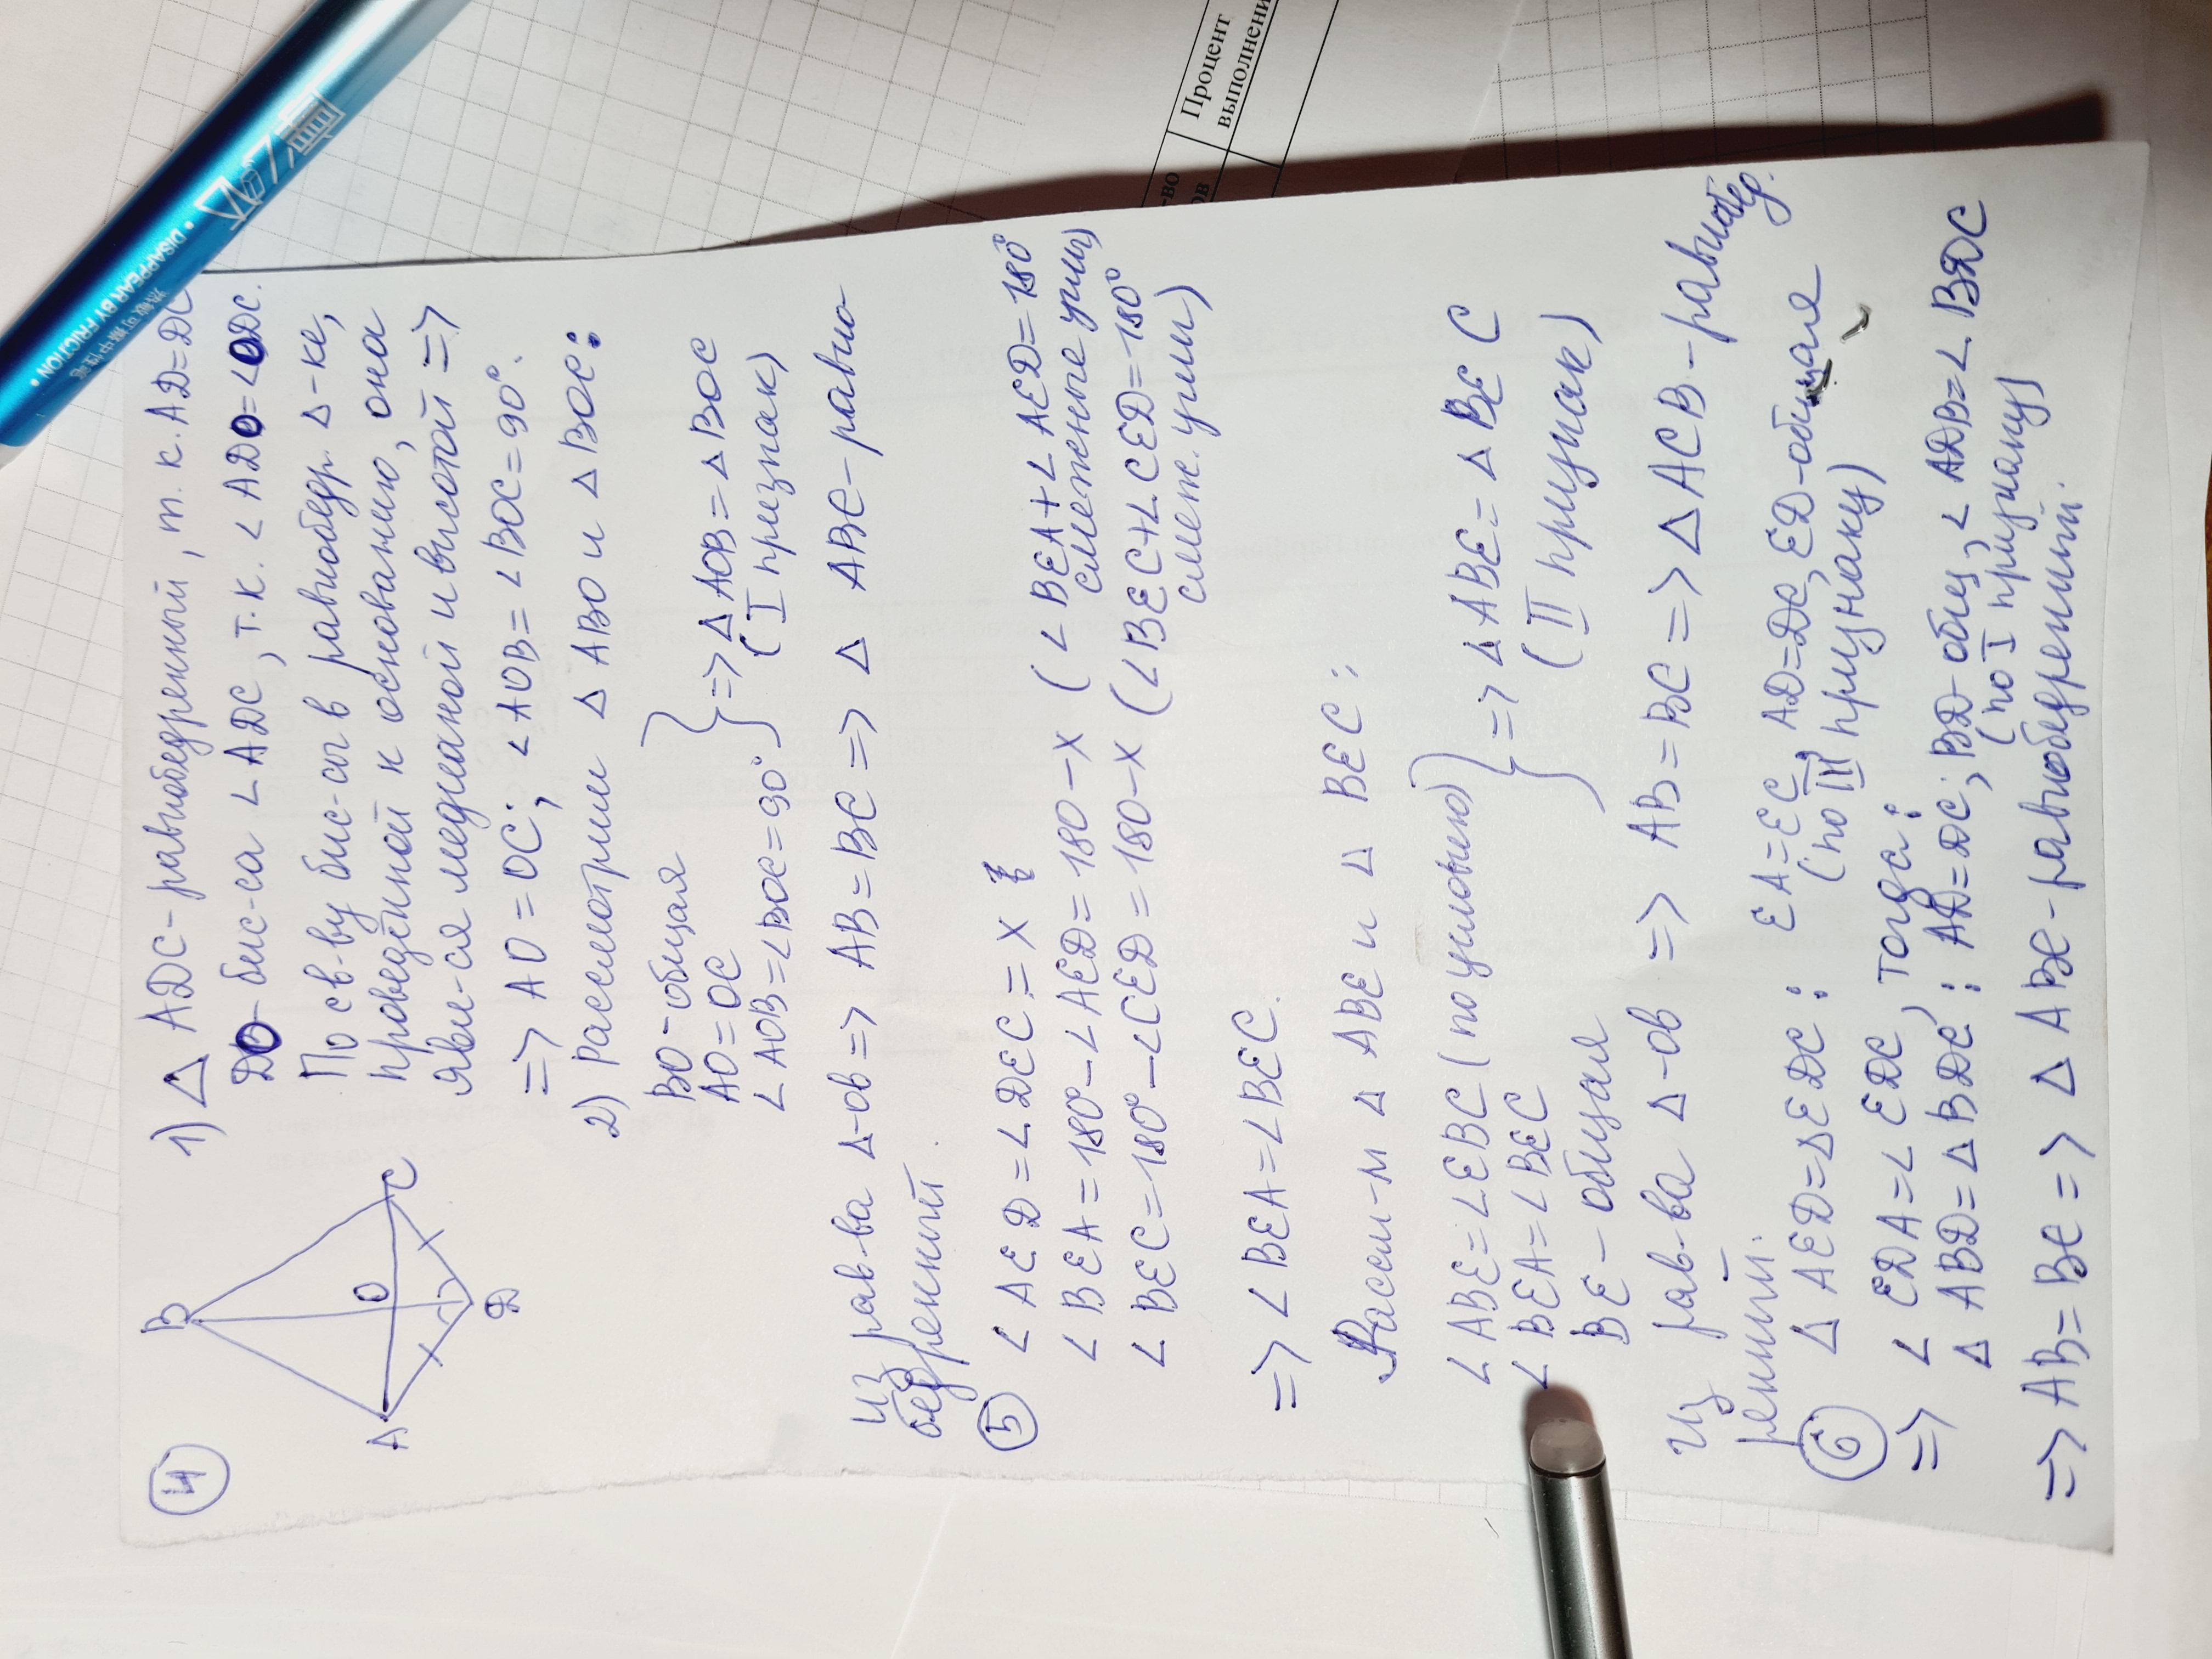 ④
B
A
O
C
D
1) △ ADC - равнобедренный, т.к. AD=DC
DO - бис-са ∠ADC, т.к. ∠ADO=∠ODC.
По св-ву бис-сы в равнобедр. △-ке,
проведённой к основанию, она
явл-ся медианой и высотой =>
=> AO=OC; ∠AOB=∠BOC=90°.
2) Рассмотрим △ABO и △BOC:
BO - общая
AO=OC
∠AOB=∠BOC=90°
} => △AOB=△BOC
(I признак)
из рав-ва △-ов => AB=BC => △ ABC - равно
бедренный.
⑤ ∠AED=∠DEC=x
∠BEA=180°-∠AED=180-x (∠BEA+∠AED=180°
смежные углы)
∠BEC=180°-∠CED=180-x (∠BEC+∠CED=180°
смеж. углы)
=> ∠BEA=∠BEC.
Рассм-м △ ABE и △ BEC:
∠ABE=∠EBC (по условию)
∠BEA=∠BEC
BE - общая
} => △ABE=△BEC
(II признак)
Из рав-ва △-ов => AB=BC => △ACB - равнобед.
ренный.
⑥ △AED=△EDC: EA=EC, AD=DC, ED-общая
(по III признаку)
=> ∠EDA=∠EDC, тогда:
△ABD=△BDC: AD=DC; BD-общ, ∠ADB=∠BDC
(по I признаку)
=> AB=BC => △ABC - равнобедренный.
• DISAPPEAR BY FRICTION •
Процент
выполнени
-во
ов